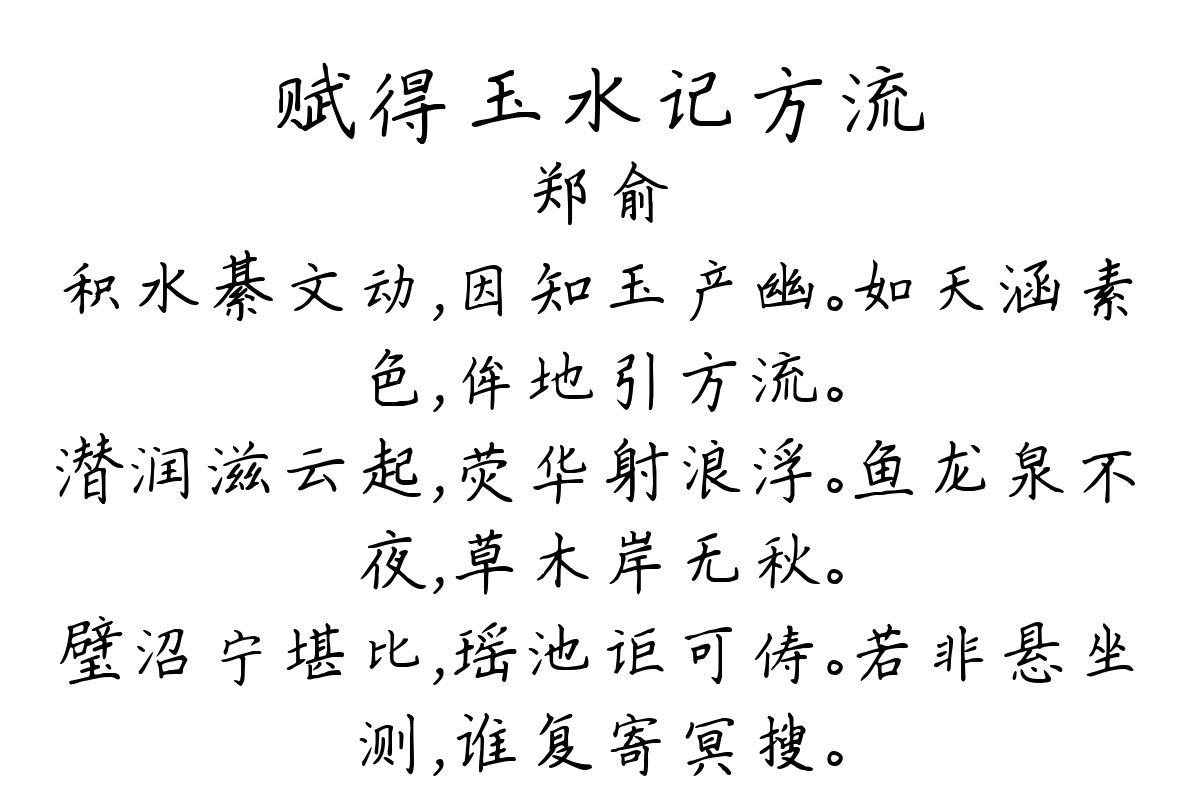 赋得玉水记方流
郑俞
积水綦文动,因知玉产幽。如天涵素
色,侔地引方流。
潜润滋云起,荧华射浪浮。鱼龙泉不
夜,草木岸无秋。
璧沼宁堪比,瑶池讵可俦。若非悬坐
测,谁复寄冥搜。